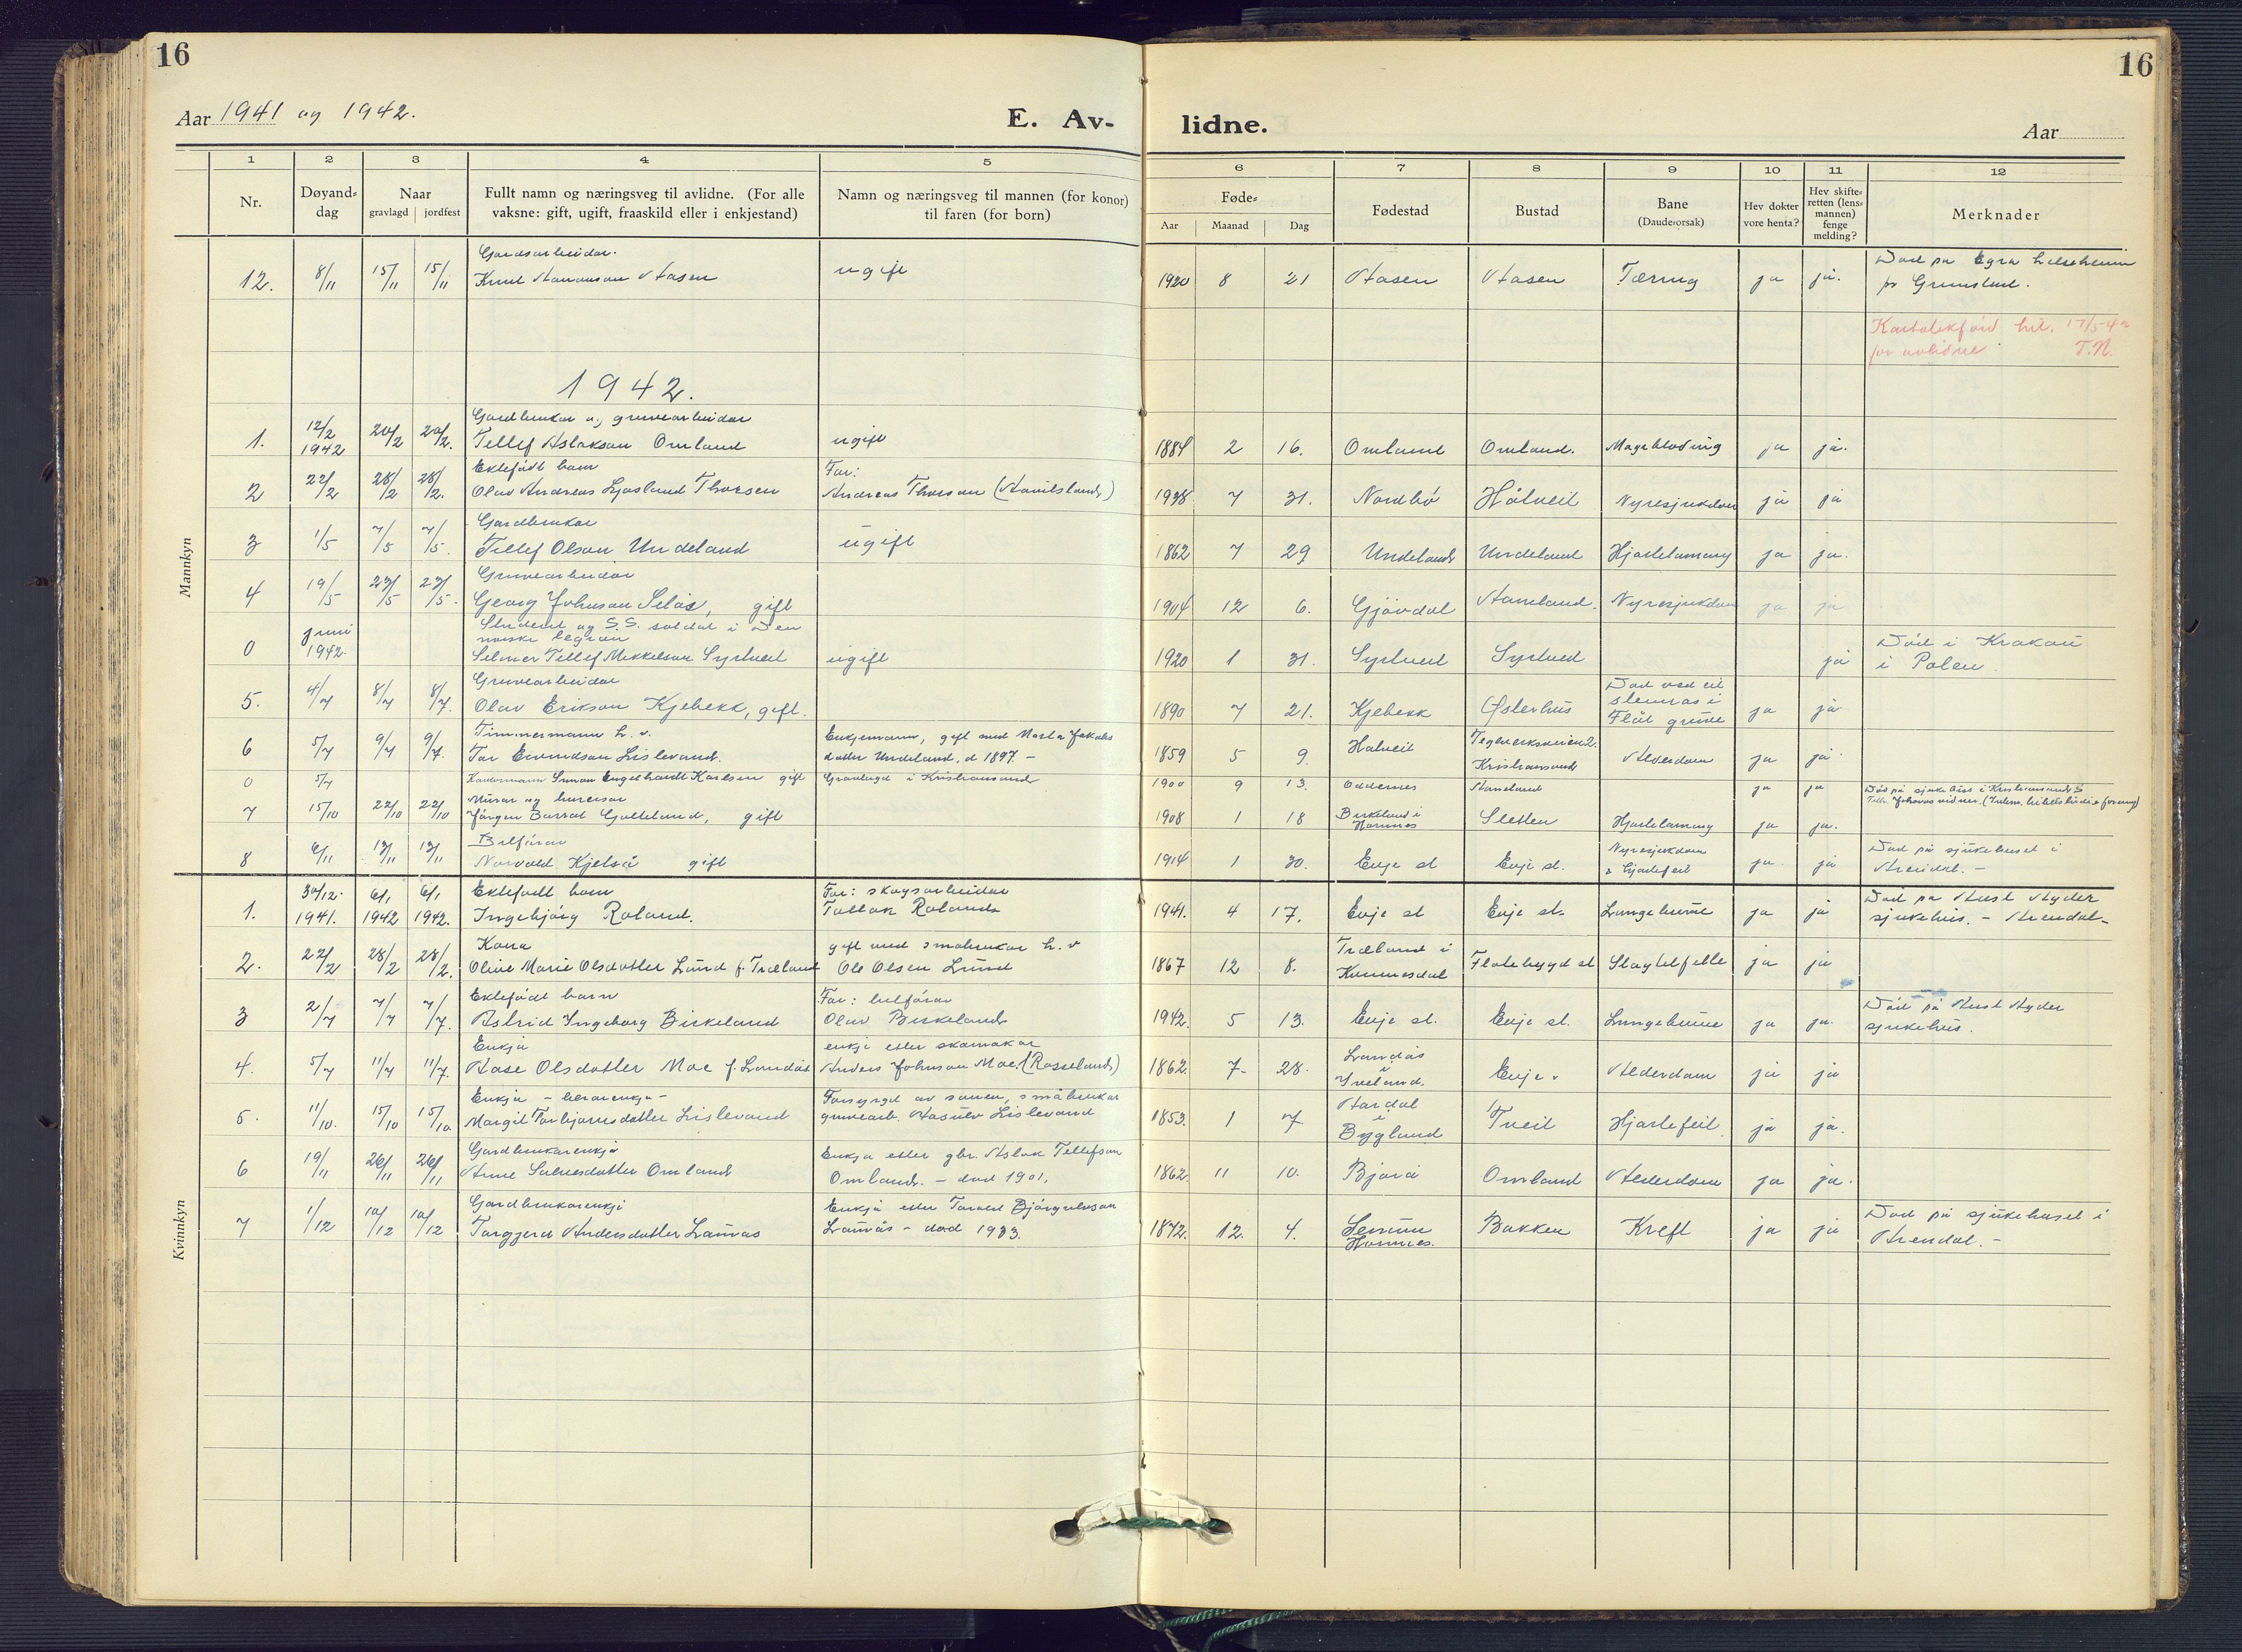 16
16
Aar 1941 og 1942.
E. Av-
lidne.
Aar
1 2 3 4 5 6 7 8 9 10 11 12
Nr. Døyand-dag Naar gravlagd jordfest Fullt namn og næringsveg til avlidne. (For alle vaksne: gift, ugift, fraaskild eller i enkjestand) Namn og næringsveg til mannen (for konor) til faren (for born) Føde- Aar Maanad Dag Fødestad Bustad Bane (Daudeorsak) Hev dokter vore henta? Hev skifteretten (lensmannen) fenge melding? Merknader
Mannkyn
Gardsarbeidar. Død på
12. 8/11 15/11 15/11 Knut Aasen ugift 1920 8 21 Aasen Aasen Tæring ja ja. Grimstad.
17/5 42
for avlidne T.N.
1942.
Gardbrukar og gruvearbeidar
1. 12/2 1942 20/2 20/2. Tellef Aslakson Omland ugift 1884 2 16. Omland Omland. Mageblöding ja ja.
Ektefödt barn Far:
2 22/2 28/2 28/2. Olav Andreas Thorsen Andreas Thorsen 1938 7 31. Nordbö Håtveit Nyresjukdom ja ja
Gardbrukar
3 1/5 7/5 7/5. Tellef Olson Undeland ugift 1862 7 29 Undeland Undeland Hjartelamang ja ja.
Gruvearbeidar
4 19/5 23/5 23/5. Georg Johnson Selås, gift 1904 12 6. Gjövdal Nyresjukdom ja ja
Student og S.S. soldat i Den norske legion
0 juni 1942. Selmer Tellef Mikkelson Syrtveit ugift 1920 1 31. Syrtveit Syrtveit ja Död i Krakau i Polen.
Gruvearbeidar
5. 4/7 8/7 8/7. Olav Erikson Kjebekk, gift. 1890 7 21. Kjebekk Østerhus Död ved eit steinras i Flåt gruve ja ja
Timmermann h. v. Enkjemann, gift med Marta Jakobs
6 5/7 9/7 9/7. Tor Eivindson Lislevand. dotter Undeland, d 1897. - 1859 5 9. Hatveit Kristiansand Alderdom ja ja
0 5/7 Simon Engelhardt Karlsen gift Gravlagd i Kristiansand 1900 9 13. Oddernes ja ja Död på sjukehus i Kristiansand S
Murar og
7 15/10 22/10 22/10 Jörgen Galteland, gift 1908 1 18 Birkeland i Hornnes Sletten Hjartelamang ja ja.
Bilförar
8 6/11 13/11 13/11 Norvald Kjetså gift 1914 1 30. Evje st Evje st. Nyresjukdom & hjartefeil ja ja Död på sjukehuset i Arendal. -
Kvinnkyn
Ektefödt barn Far: skogsarbeidar
1. 30/12. 1941. 6/1 1942 6/1 1942. Ingebjörg Roland. Tallak Roland 1941. 4 17. Evje st Evje st. Lungebetne ja ja Död på Aust Agder sjukehus. - Arendal.
Kona gift med småbrukar h. v
2. 22/2 28/2 28/2. Olive Marie Olsdotter Lund f. Træland Ole Olsen Lund 1867 12 8. Træland i Flatebygd st Slagtilfelle ja ja
Ektefödt barn Far: bilförar
3 2/7 7/7 7/7. Astrid Ingeborg Birkeland Olav Birkeland 1942. 5 13. Evje st. Evje st. ja ja. Död på Aust Agder sjukehus.
Enkja enkje etter skomakar
4. 5/7 11/7 11/7. Aase Olsdotter Moe f. Landås Anders Johnson Moe. (Rosseland) 1862. 7 28. Landås i Iveland. Evje. Alderdom ja ja
Enkja Forsyrgd av sonen, småbrukar
5. 11/10. 15/10 15/10 Margit Torbjørnsdotter Lislevand gruvearb. Lislevand 1853. 1 7 i Bygland Tveit Hjartefeil ja ja.
Gardbrukarenkja Enkja etter gbr. Aslak Tellefson
6 19/11 26/11 26/11 Anne Salvesdotter Omland Omland. - död 1901. 1862. 11 10. Bjorå Omland Alderdom ja ja.
Gardbrukarenkja Enkja etter Torvald
7 1/12 10/12 10/12 Torggerd Andersdotter Lauvås Lauvås - död 1933. 1872. 12. 4. Senum Hornnes. Bakken Kreft ja ja Död på sjukehuset i Arendal. -